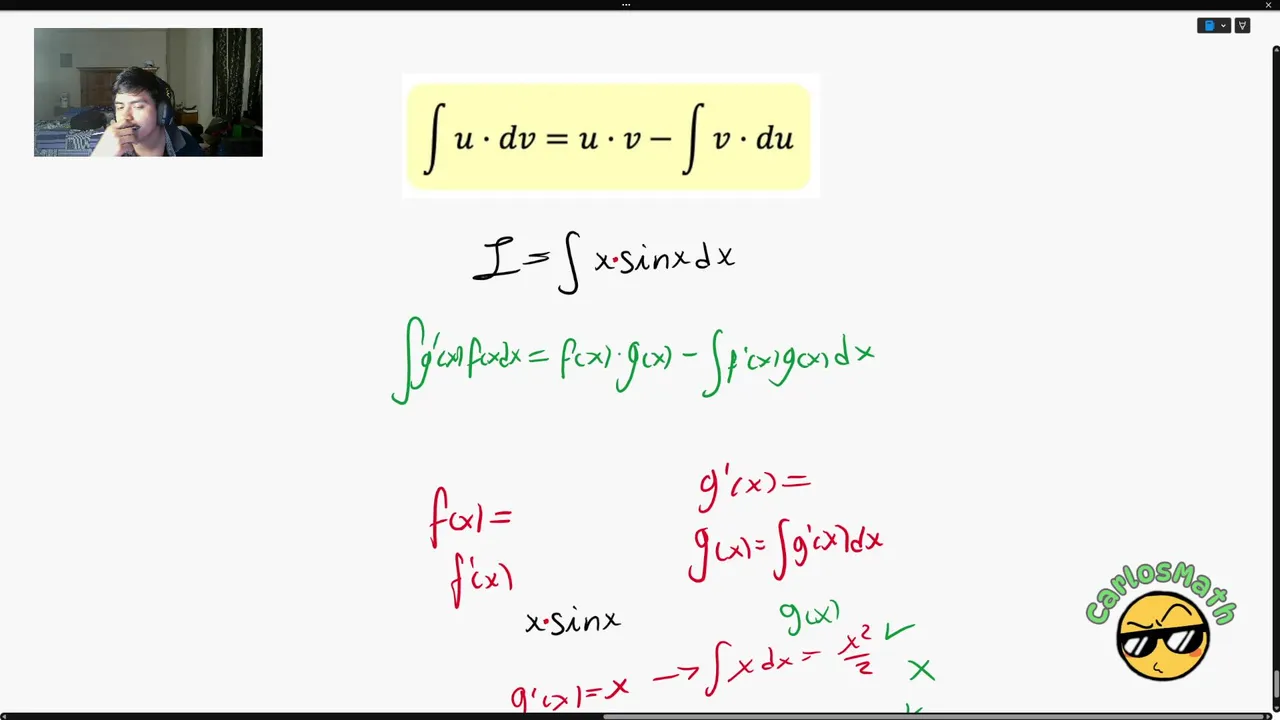 ∫ u · dv = u · v − ∫ v · du
I = ∫ x·sinx dx
∫g'(x) f(x)dx = f(x)·g(x) − ∫f'(x)g(x)dx
f(x) =
f'(x)
g'(x) =
g(x) = ∫g'(x)dx
x·sinx
g(x)
g'(x) = x → ∫x dx = x²/2 ✓
x
CarlosMath